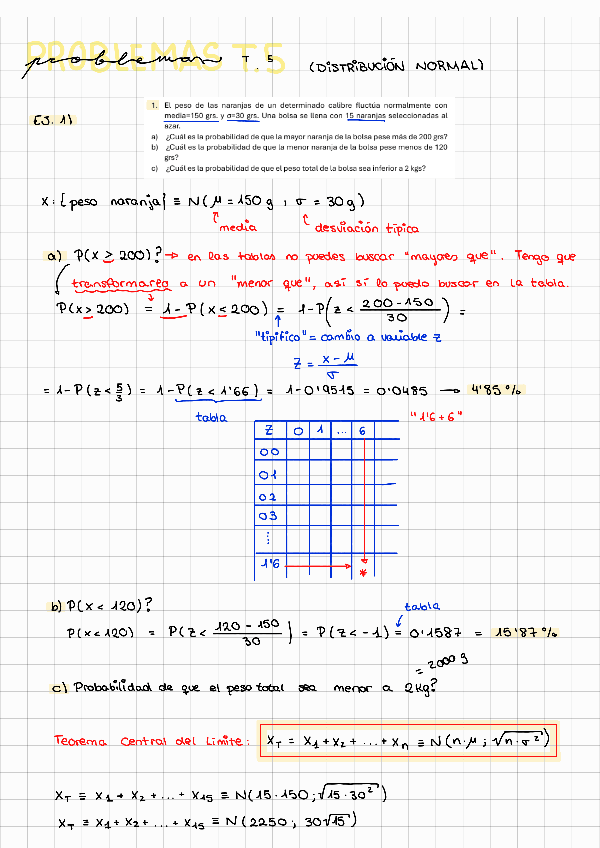 PROBLEMAS T.5
problemas T.5 (DISTRIBUCIÓN NORMAL)
EJ. 1)
1. El peso de las naranjas de un determinado calibre fluctúa normalmente con
media=150 grs. y σ=30 grs. Una bolsa se llena con 15 naranjas seleccionadas al
azar.
a) ¿Cuál es la probabilidad de que la mayor naranja de la bolsa pese más de 200 grs?
b) ¿Cuál es la probabilidad de que la menor naranja de la bolsa pese menos de 120
grs?
c) ¿Cuál es la probabilidad de que el peso total de la bolsa sea inferior a 2 kgs?
X: {peso naranja} ≡ N(μ = 150 g ; σ = 30 g)
↑ media ↑ desviación típica
a) P(x > 200)? → en las tablas no puedes buscar "mayores que". Tengo que
transformarlo a un "menor que", así sí lo puedo buscar en la tabla.
P(x > 200) = 1 - P(x ≤ 200) = 1 - P(z < (200 - 150)/30) =
"tipifico" = cambio a variable z
z = (x - μ)/σ
= 1 - P(z < 5/3) = 1 - P(z < 1'66) = 1 - 0'9515 = 0'0485 → 4'85%
tabla "1'6 + 6"
Z 0 1 ... 6
00
01
02
03
⋮
1'6 *
b) P(x < 120)? tabla
P(x < 120) = P(z < (120 - 150)/30) = P(z < -1) = 0'1587 = 15'87%
= 2000 g
c) Probabilidad de que el peso total sea menor a 2kg?
Teorema Central del Límite: X_T = X_1 + X_2 + ... + X_n ≡ N(n·μ ; √(n·σ²))
X_T ≡ X_1 + X_2 + ... + X_15 ≡ N(15·150 ; √(15·30²))
X_T ≡ X_1 + X_2 + ... + X_15 ≡ N(2250 ; 30√15)